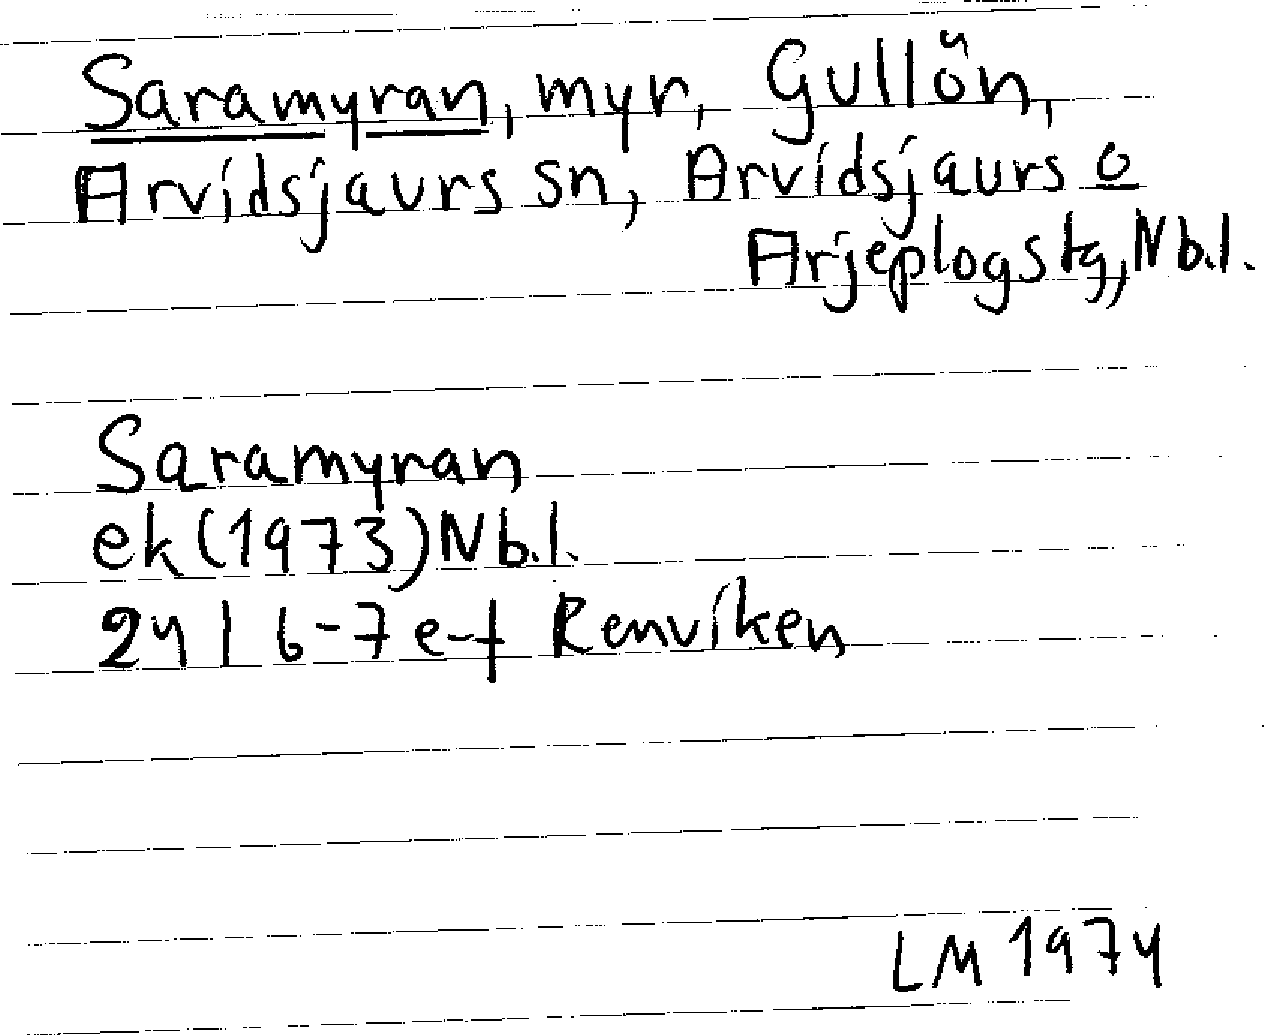 Saramyran, myr, Gullön,
Arvidsjaurs sn, Arvidsjaurs o
Arjeplogs tg, Nb.l.
Saramyran
ek (1973) Nb.l.
24 I 6-7 e-f Renviken
LM 1974